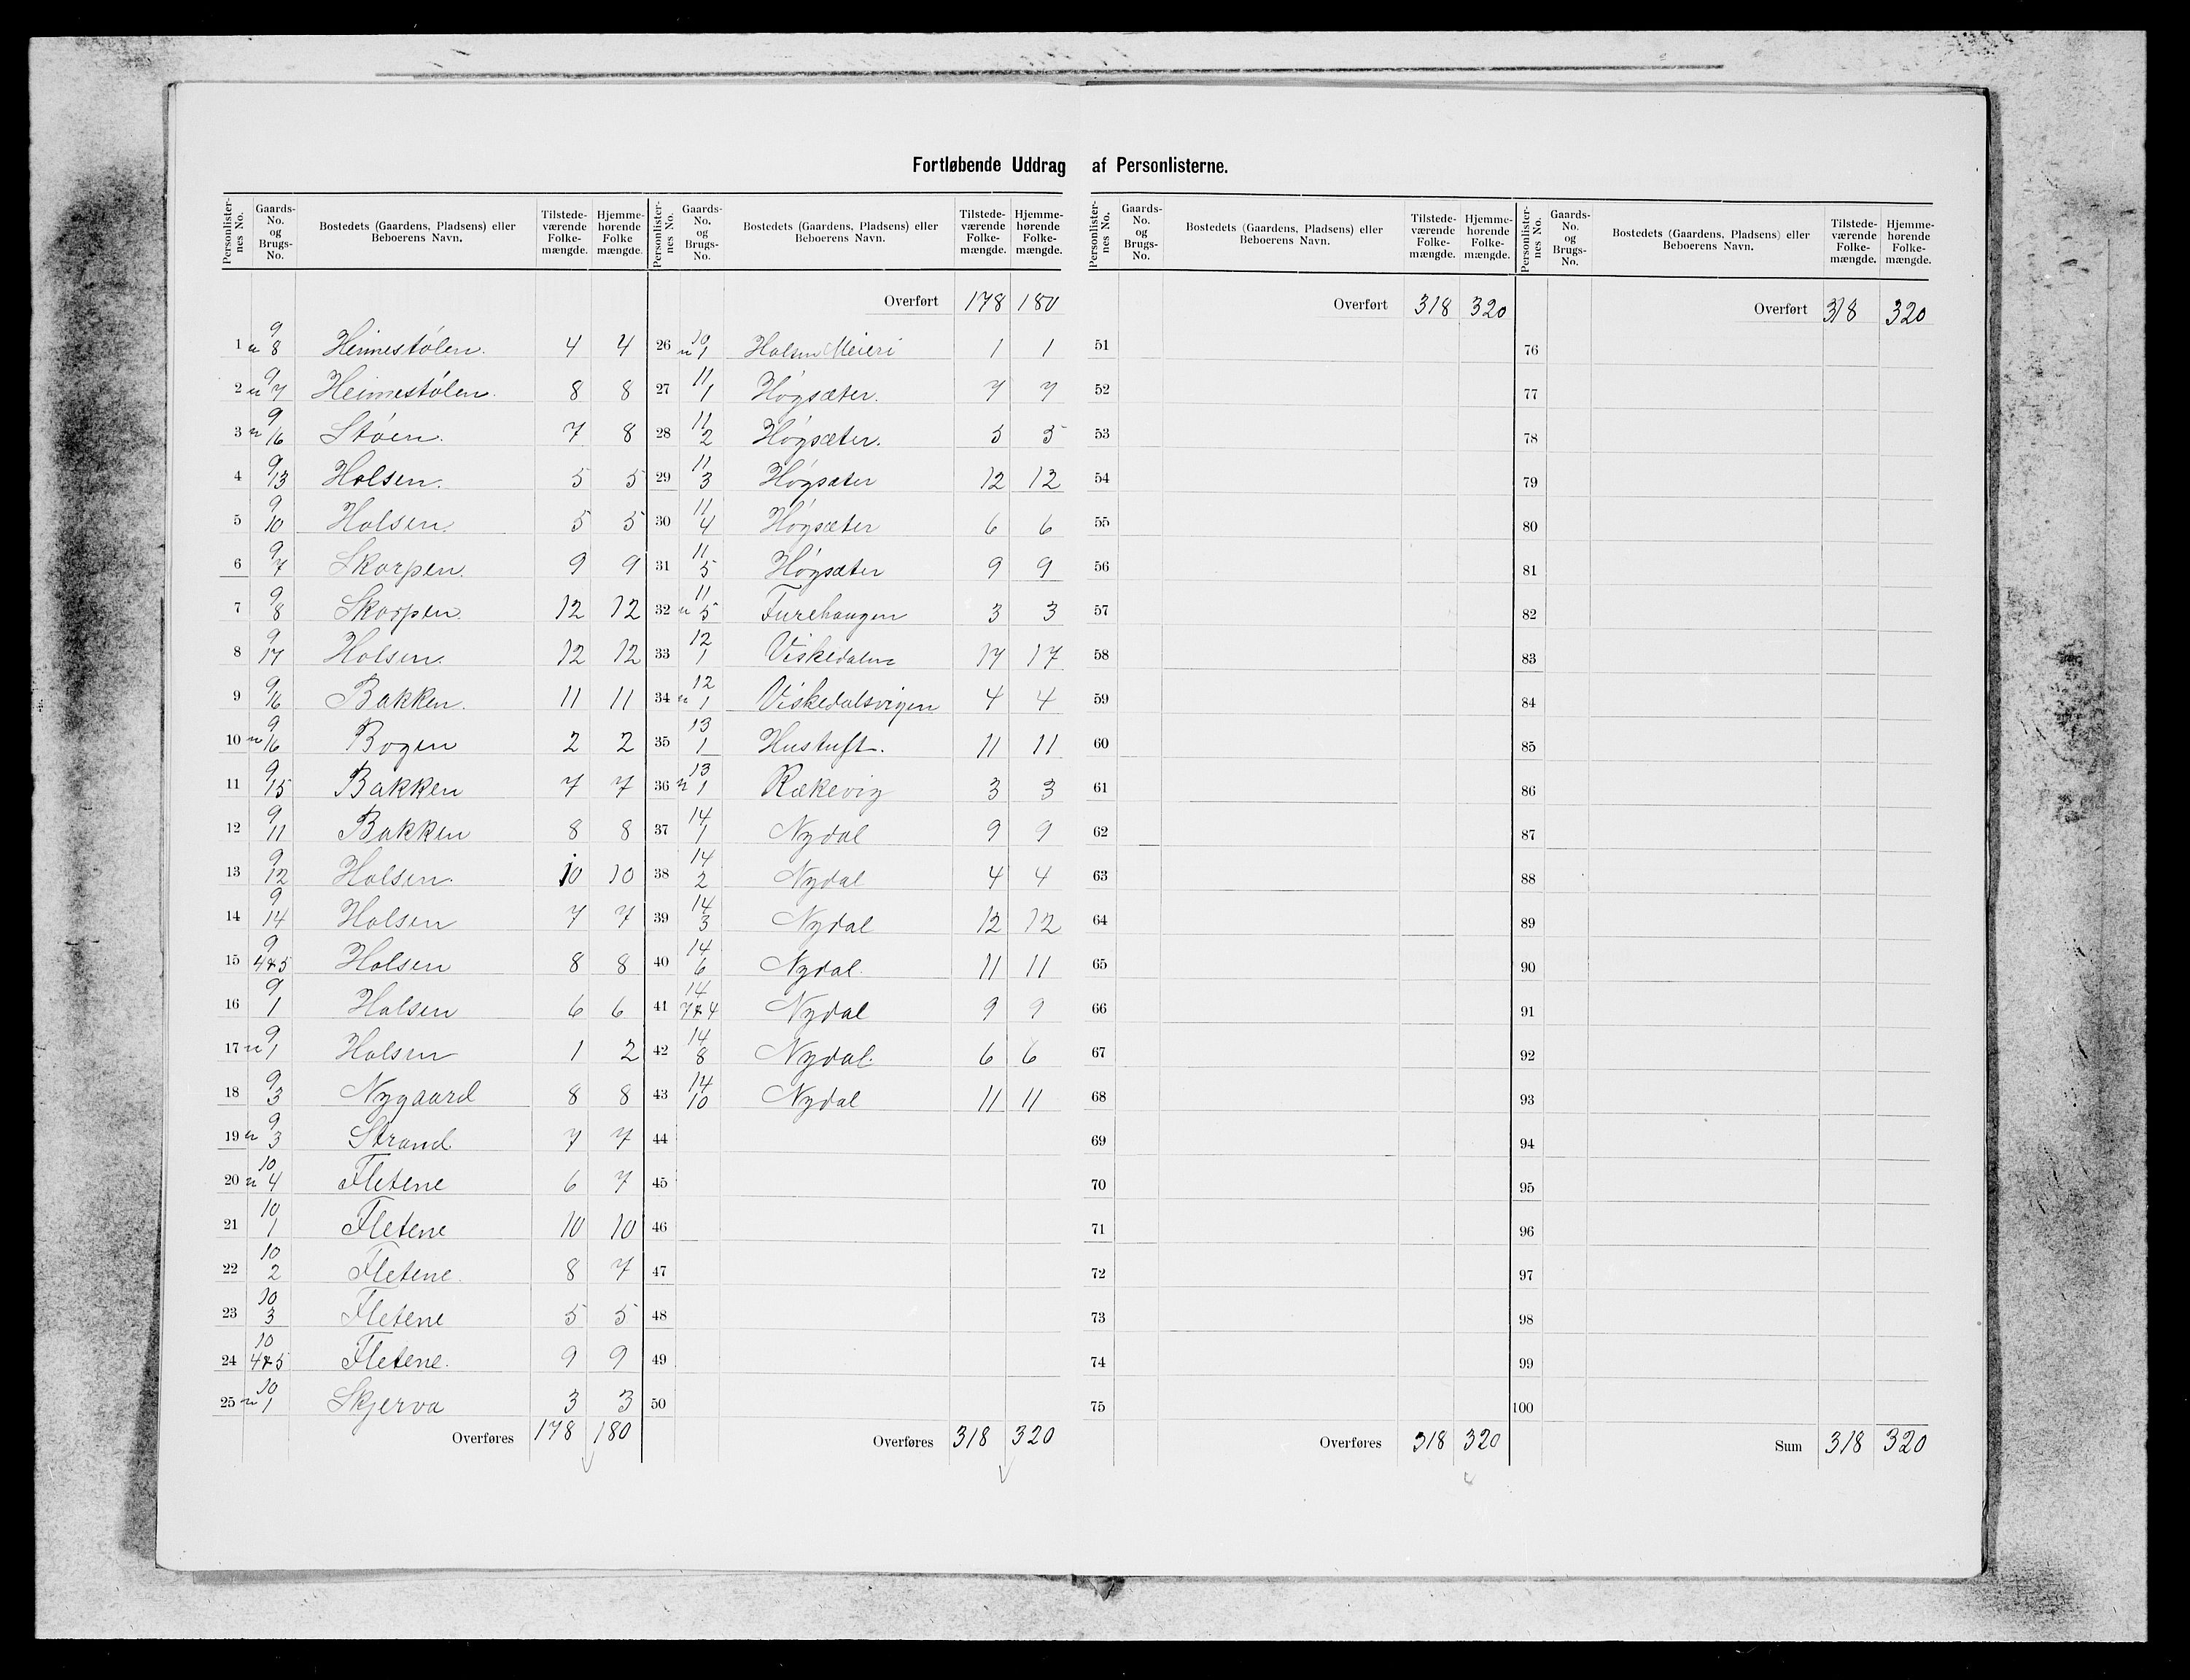 Fortløbende Uddrag af Personlisterne.
Personlisternes No. Gaards-No. og Brugs-No. Bostedets (Gaardens, Pladsens) eller Beboerens Navn. Tilstedeværende Folkemængde. Hjemmehørende Folkemængde.
1 u 9/8 Heimestølen. 4 4
2 u 9/7 Heimestølen. 8 8
3 u 9/16 Støen. 7 8
4 9/13 Holsen. 5 5
5 9/10 Holsen. 5 5
6 9/7 Skorpen. 9 9
7 9/8 Skorpen. 12 12
8 9/17 Holsen. 12 12
9 9/16 Bakken. 11 11
10 u 9/16 Bogen 2 2
11 9/15 Bakken 7 7
12 9/11 Bakken 8 8
13 9/12 Holsen. 10 10
14 9/14 Holsen 7 7
15 9/4&5 Holsen 8 8
16 9/1 Holsen 6 6
17 u 9/1 Holsen 1 2
18 9/3 Nygaard 8 8
19 u 9/3 Strand 7 7
20 u 10/4 Fletene 6 7
21 10/1 Fletene 10 10
22 10/2 Fletene. 8 7
23 10/3 Fletene 5 5
24 10/4&5 Fletene. 9 9
25 u 10/1 Skjerva 3 3
Overføres 178 180
Personlisternes No. Gaards-No. og Brugs-No. Bostedets (Gaardens, Pladsens) eller Beboerens Navn. Tilstedeværende Folkemængde. Hjemmehørende Folkemængde.
Overført 178 180
26 u 10/1 Holsen Meieri 1 1
27 11/1 Høgsæter. 7 7
28 11/2 Høgsæter. 5 5
29 11/3 Høgsæter 12 12
30 11/4 Høgsæter 6 6
31 11/5 Høgsæter 9 9
32 u 11/5 Furehaugen 3 3
33 12/1 Viskedalen 17 17
34 u 12/1 Viskedalsvigen 4 4
35 13/1 Hustuft. 11 11
36 u 13/1 Rækevig 3 3
37 14/1 Nydal 9 9
38 14/2 Nydal 4 4
39 14/3 Nydal 12 12
40 14/6 Nydal. 11 11
41 14/7&4 Nydal 9 9
42 14/8 Nydal. 6 6
43 14/10 Nydal 11 11
44
45
46
47
48
49
50
Overføres 318 320
Personlisternes No. Gaards-No. og Brugs-No. Bostedets (Gaardens, Pladsens) eller Beboerens Navn. Tilstedeværende Folkemængde. Hjemmehørende Folkemængde.
Overført 318 320
51
52
53
54
55
56
57
58
59
60
61
62
63
64
65
66
67
68
69
70
71
72
73
74
75
Overføres 318 320
Personlisternes No. Gaards-No. og Brugs-No. Bostedets (Gaardens, Pladsens) eller Beboerens Navn. Tilstedeværende Folkemængde. Hjemmehørende Folkemængde.
Overført 318 320
76
77
78
79
80
81
82
83
84
85
86
87
88
89
90
91
92
93
94
95
96
97
98
99
100
Sum 318 320